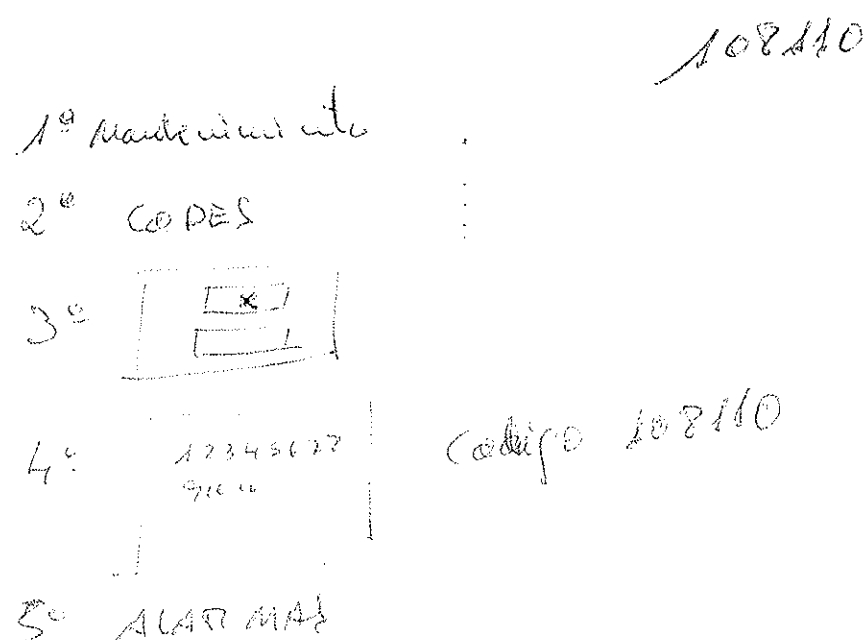 108110
1º Mantenimiento
2º CODES
3º
4º 12345678
Codigo 108110
5º ALARMAS